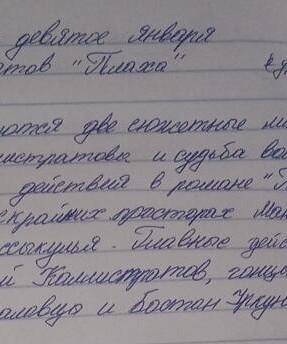 девятое января
атов "Плаха"
ются две сюжетные ли
листратова и судьба во
действия в романе "П
скрайних просторах Мо
ссыкулья. Главные дей
й Каллистратов, гонцы
аловцо и Бостан Уркун